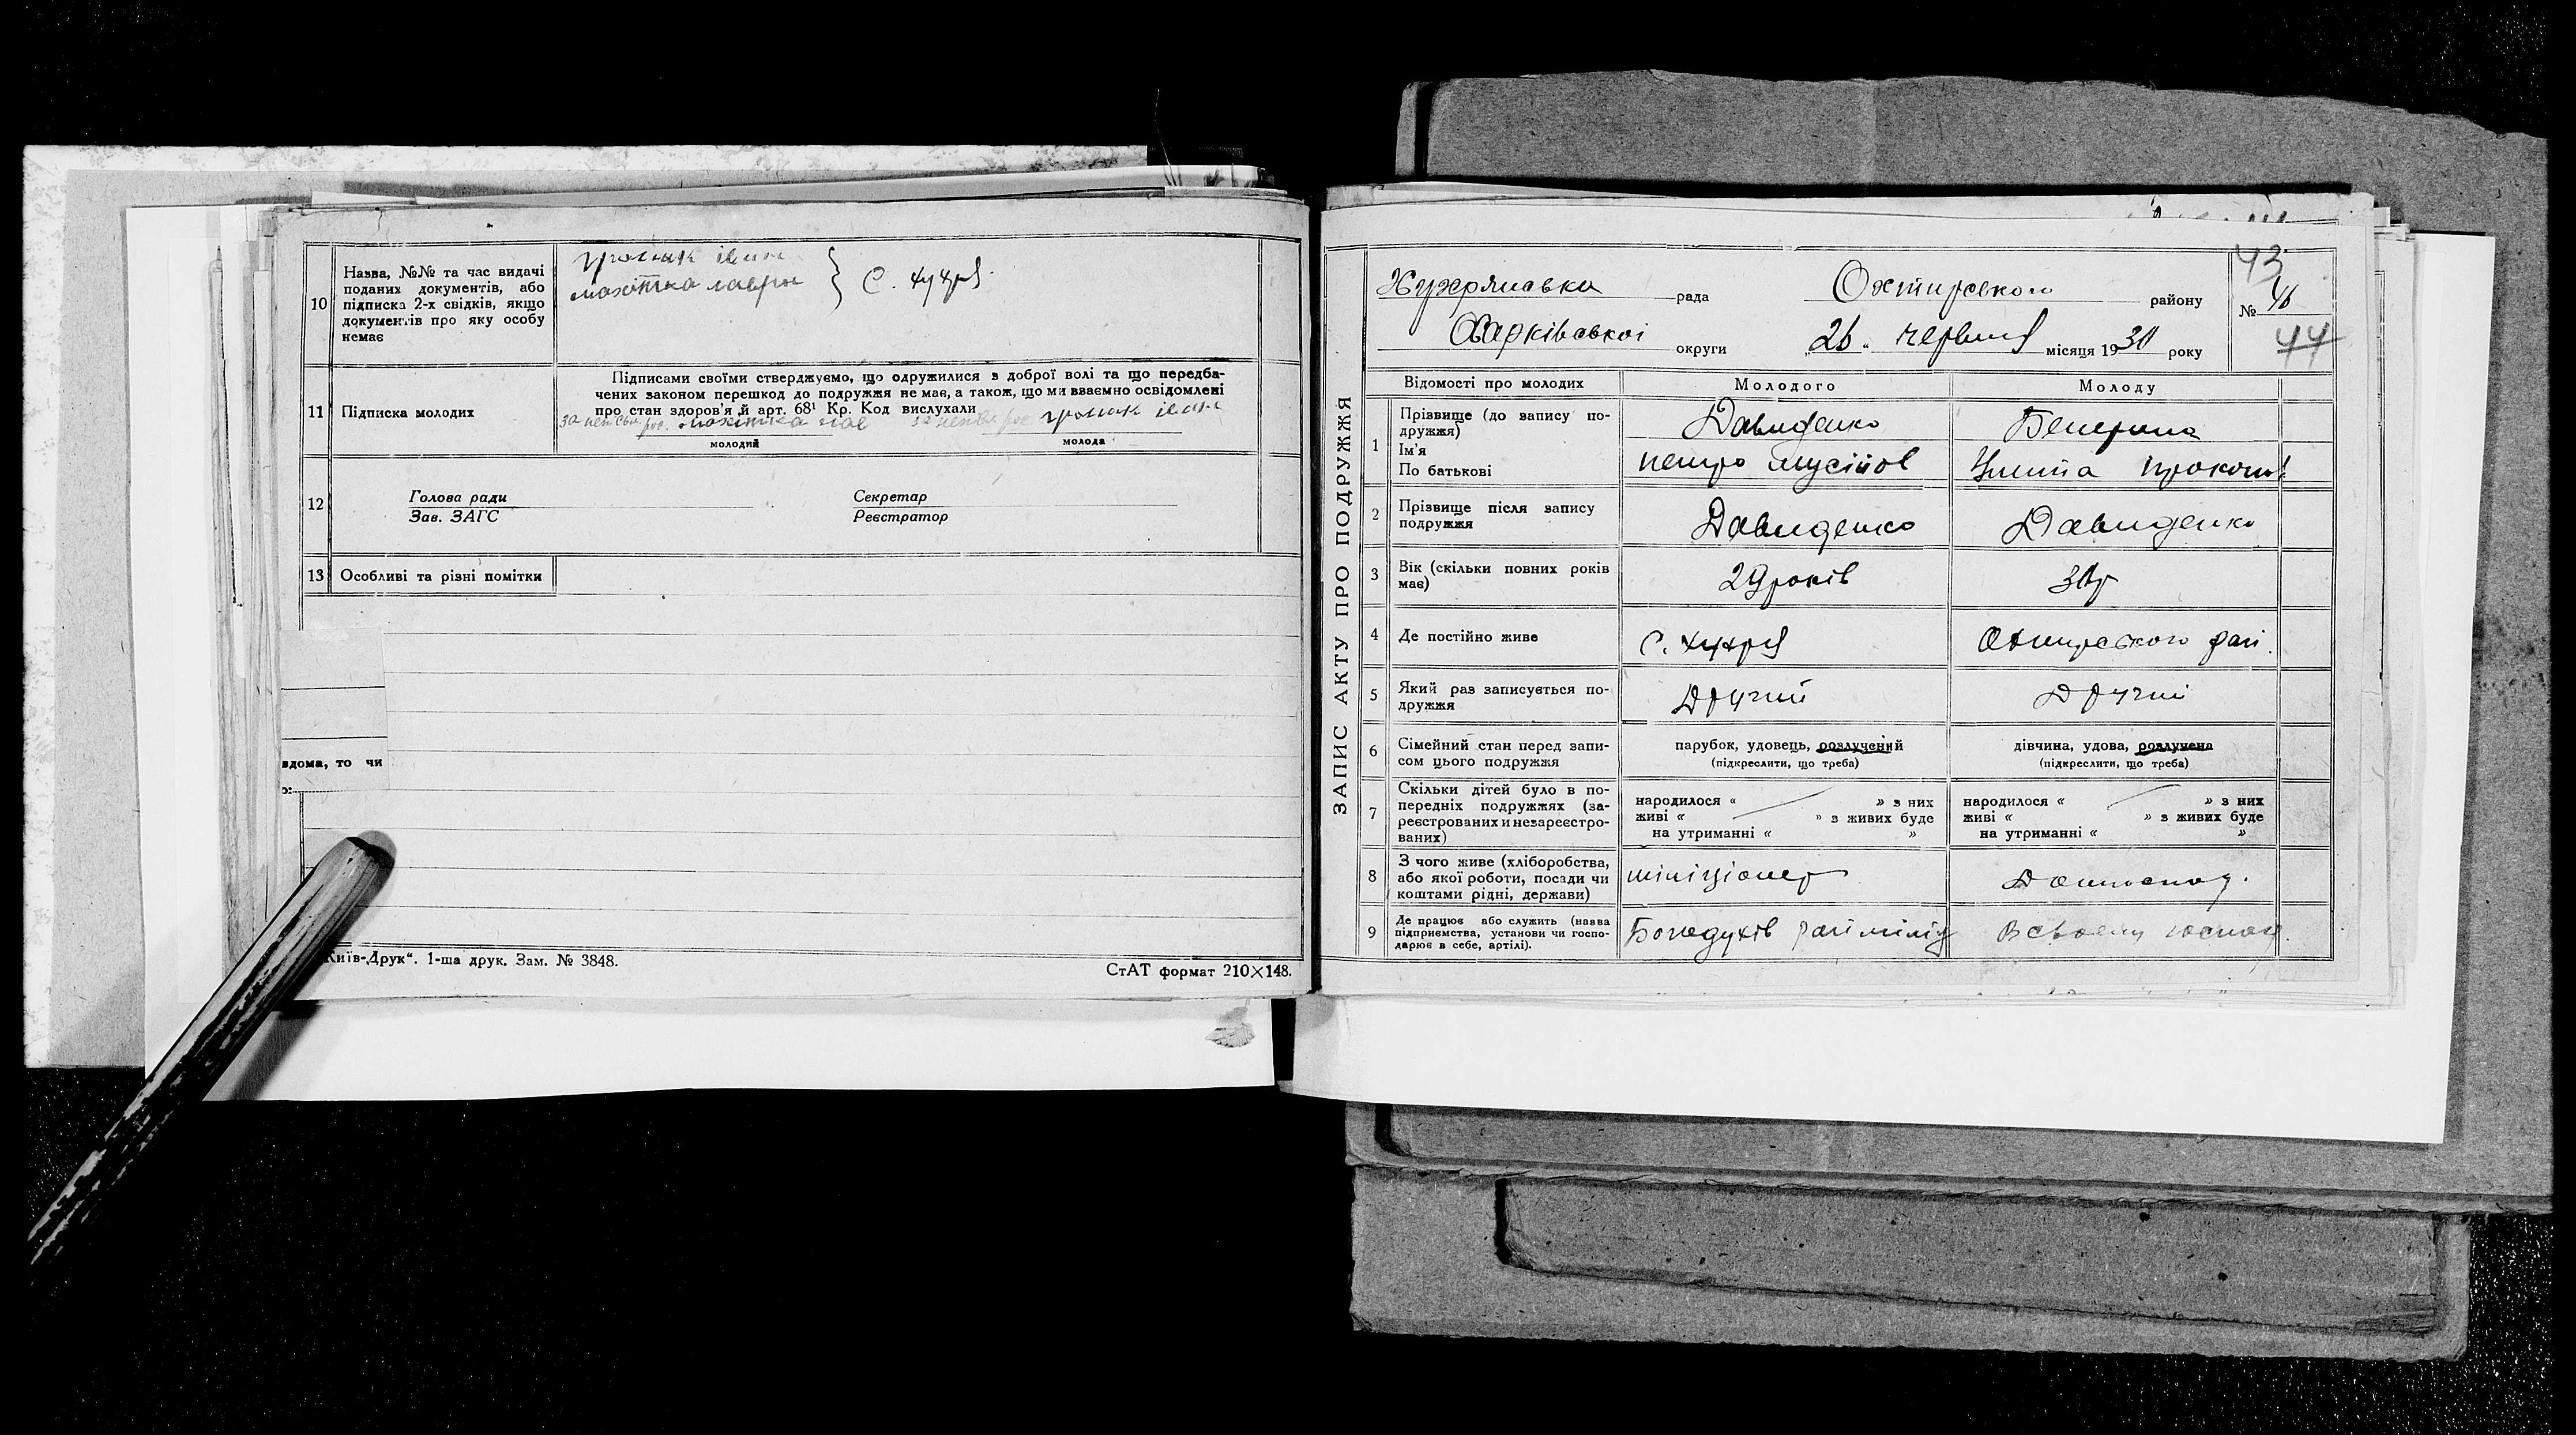 10 Назва, №№ та час видачі
поданих документів, або
підписка 2-х свідків, якщо
документів про яку особу
немає
С. Хухря
11 Підписка молодих
Підписами своїми стверджуємо, що одружилися з доброї волі та що передба-
чених законом перешкод до подружжя не має, а також, що ми взаємно освідомлені
про стан здоров'я й арт. 68¹ Кр. Код вислухали
молодий молода
12 Голова ради Секретар
Зав. ЗАГС Реєстратор
13 Особливі та різні помітки
вдома, то чи
Київ-Друк“. 1-ша друк. Зам. № 3848.
СтАТ формат 210×148.
ЗАПИС АКТУ ПРО ПОДРУЖЖЯ
43
Хухрянська рада Охтирського району
№
Харківської округи „26“ червня місяця 1930 року
44
Відомості про молодих Молодого Молоду
1 Прізвище (до запису по-
дружжя)
Ім'я
По батькові
Давиденко
петро мусійов
2 Прізвище після запису
подружжя
Давиденко Давиденко
3 Вік (скільки повних років
має)
29 років 30 р
4 Де постійно живе С. Хухря Охтирського рай.
5 Який раз записується по-
дружжя
Другий Другий
6 Сімейний стан перед запи-
сом цього подружжя
парубок, удовець, розлучений дівчина, удова, розлучена
(підкреслити, що треба) (підкреслити, що треба)
7 Скільки дітей було в по-
передніх подружжях (за-
реєстрованих и незареєстро-
ваних)
народилося « » з них народилося « » з них
живі « » з живих буде живі « » з живих буде
на утриманні « » на утриманні « »
8 З чого живе (хліборобства,
або якої роботи, посади чи
коштами рідні, держави)
міліціонер
9 Де працює або служить (назва
підприємства, установи чи госпо-
дарює в себе, артілі).
Богодухів рай міліц В своему госпо